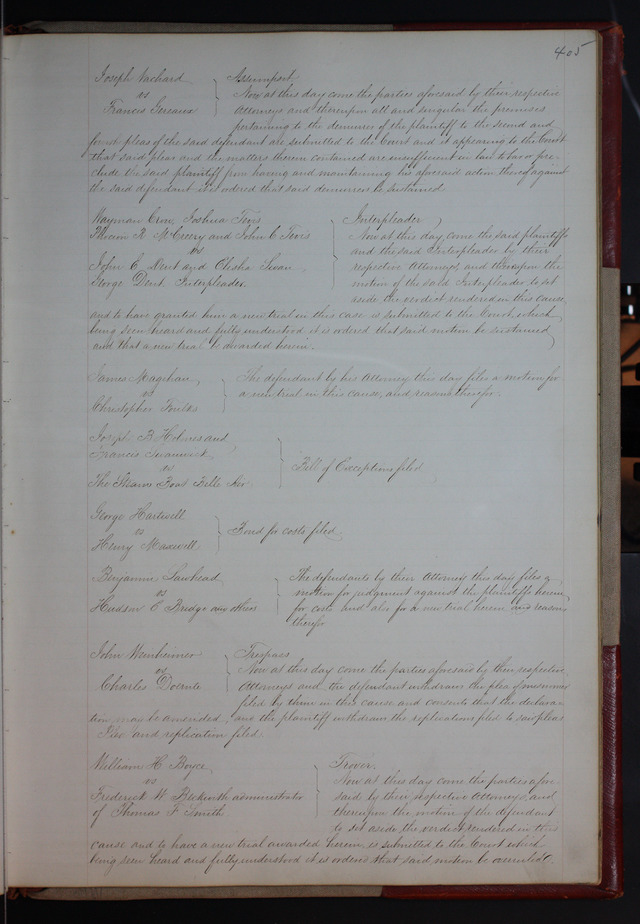 405
Joseph Vachard } Assumpsit
vs Now at this day come the parties aforesaid by their respective
Francis Gereaux Attorneys and thereupon all and singular the premises
pertaining to the demurrer of the plaintiff to the second and
fourth pleas of the said defendant are submitted to the Court and it appearing to the Court
that said pleas and the matters therein contained are insufficient in law to bar or pre-
clude the said plaintiff from having and maintaining his aforesaid action thereof against
the said defendant it is ordered that said demurrer be sustained
Wayman Crow, Joshua Tevis } Interpleader
R McCreery and John C Tevis Now at this day come the said plaintiffs
vs and the said Interpleader by their
John C Dent and Elisha Swan respective Attorneys, and thereupon the
George Dent Interpleader motion of the said Interpleader to set
aside the verdict rendered in this cause
and to have granted him a new trial in this case is submitted to the Court, which
being seen heard and fully understood it is ordered that said motion be sustained
and that a new trial be awarded herein.
James Magehan } The defendant by his Attorney this day files a motion for
vs a new trial in this cause, and reasons therefor.
Christopher Foulks
Joseph B Holmes and
Francis Swanwick
vs } Bill of Exceptions filed
The Steam Boat Belle Air
George Hartwell
vs } Bond for costs filed
Henry Maxwell
Benjamin Lawhead } The defendants by their Attorneys this day files a
vs motion for judgment against the plaintiffs herein
Hudson E Bridge and others for costs and also for a new trial herein and reasons
therefor
John Weinheimer } Trespass
vs Now at this day come the parties aforesaid by their respective
Charles Attorneys and the defendant withdraws the plea of misnomer
filed by them in this cause and consents that the declara-
tion may be amended, and the plaintiff withdraws the replication filed to said pleas
Plea and replication filed.
William H Boyce } Trover.
vs Now at this day come the parties afore-
Frederick W Beckwith administrator said by their respective Attorneys, and
of Thomas F Smith thereupon the motion of the defendant
to set aside the verdict rendered in this
cause and to have a new trial awarded herein, is submitted to the Court which
being seen heard and fully understood it is ordered that said motion be overruled.